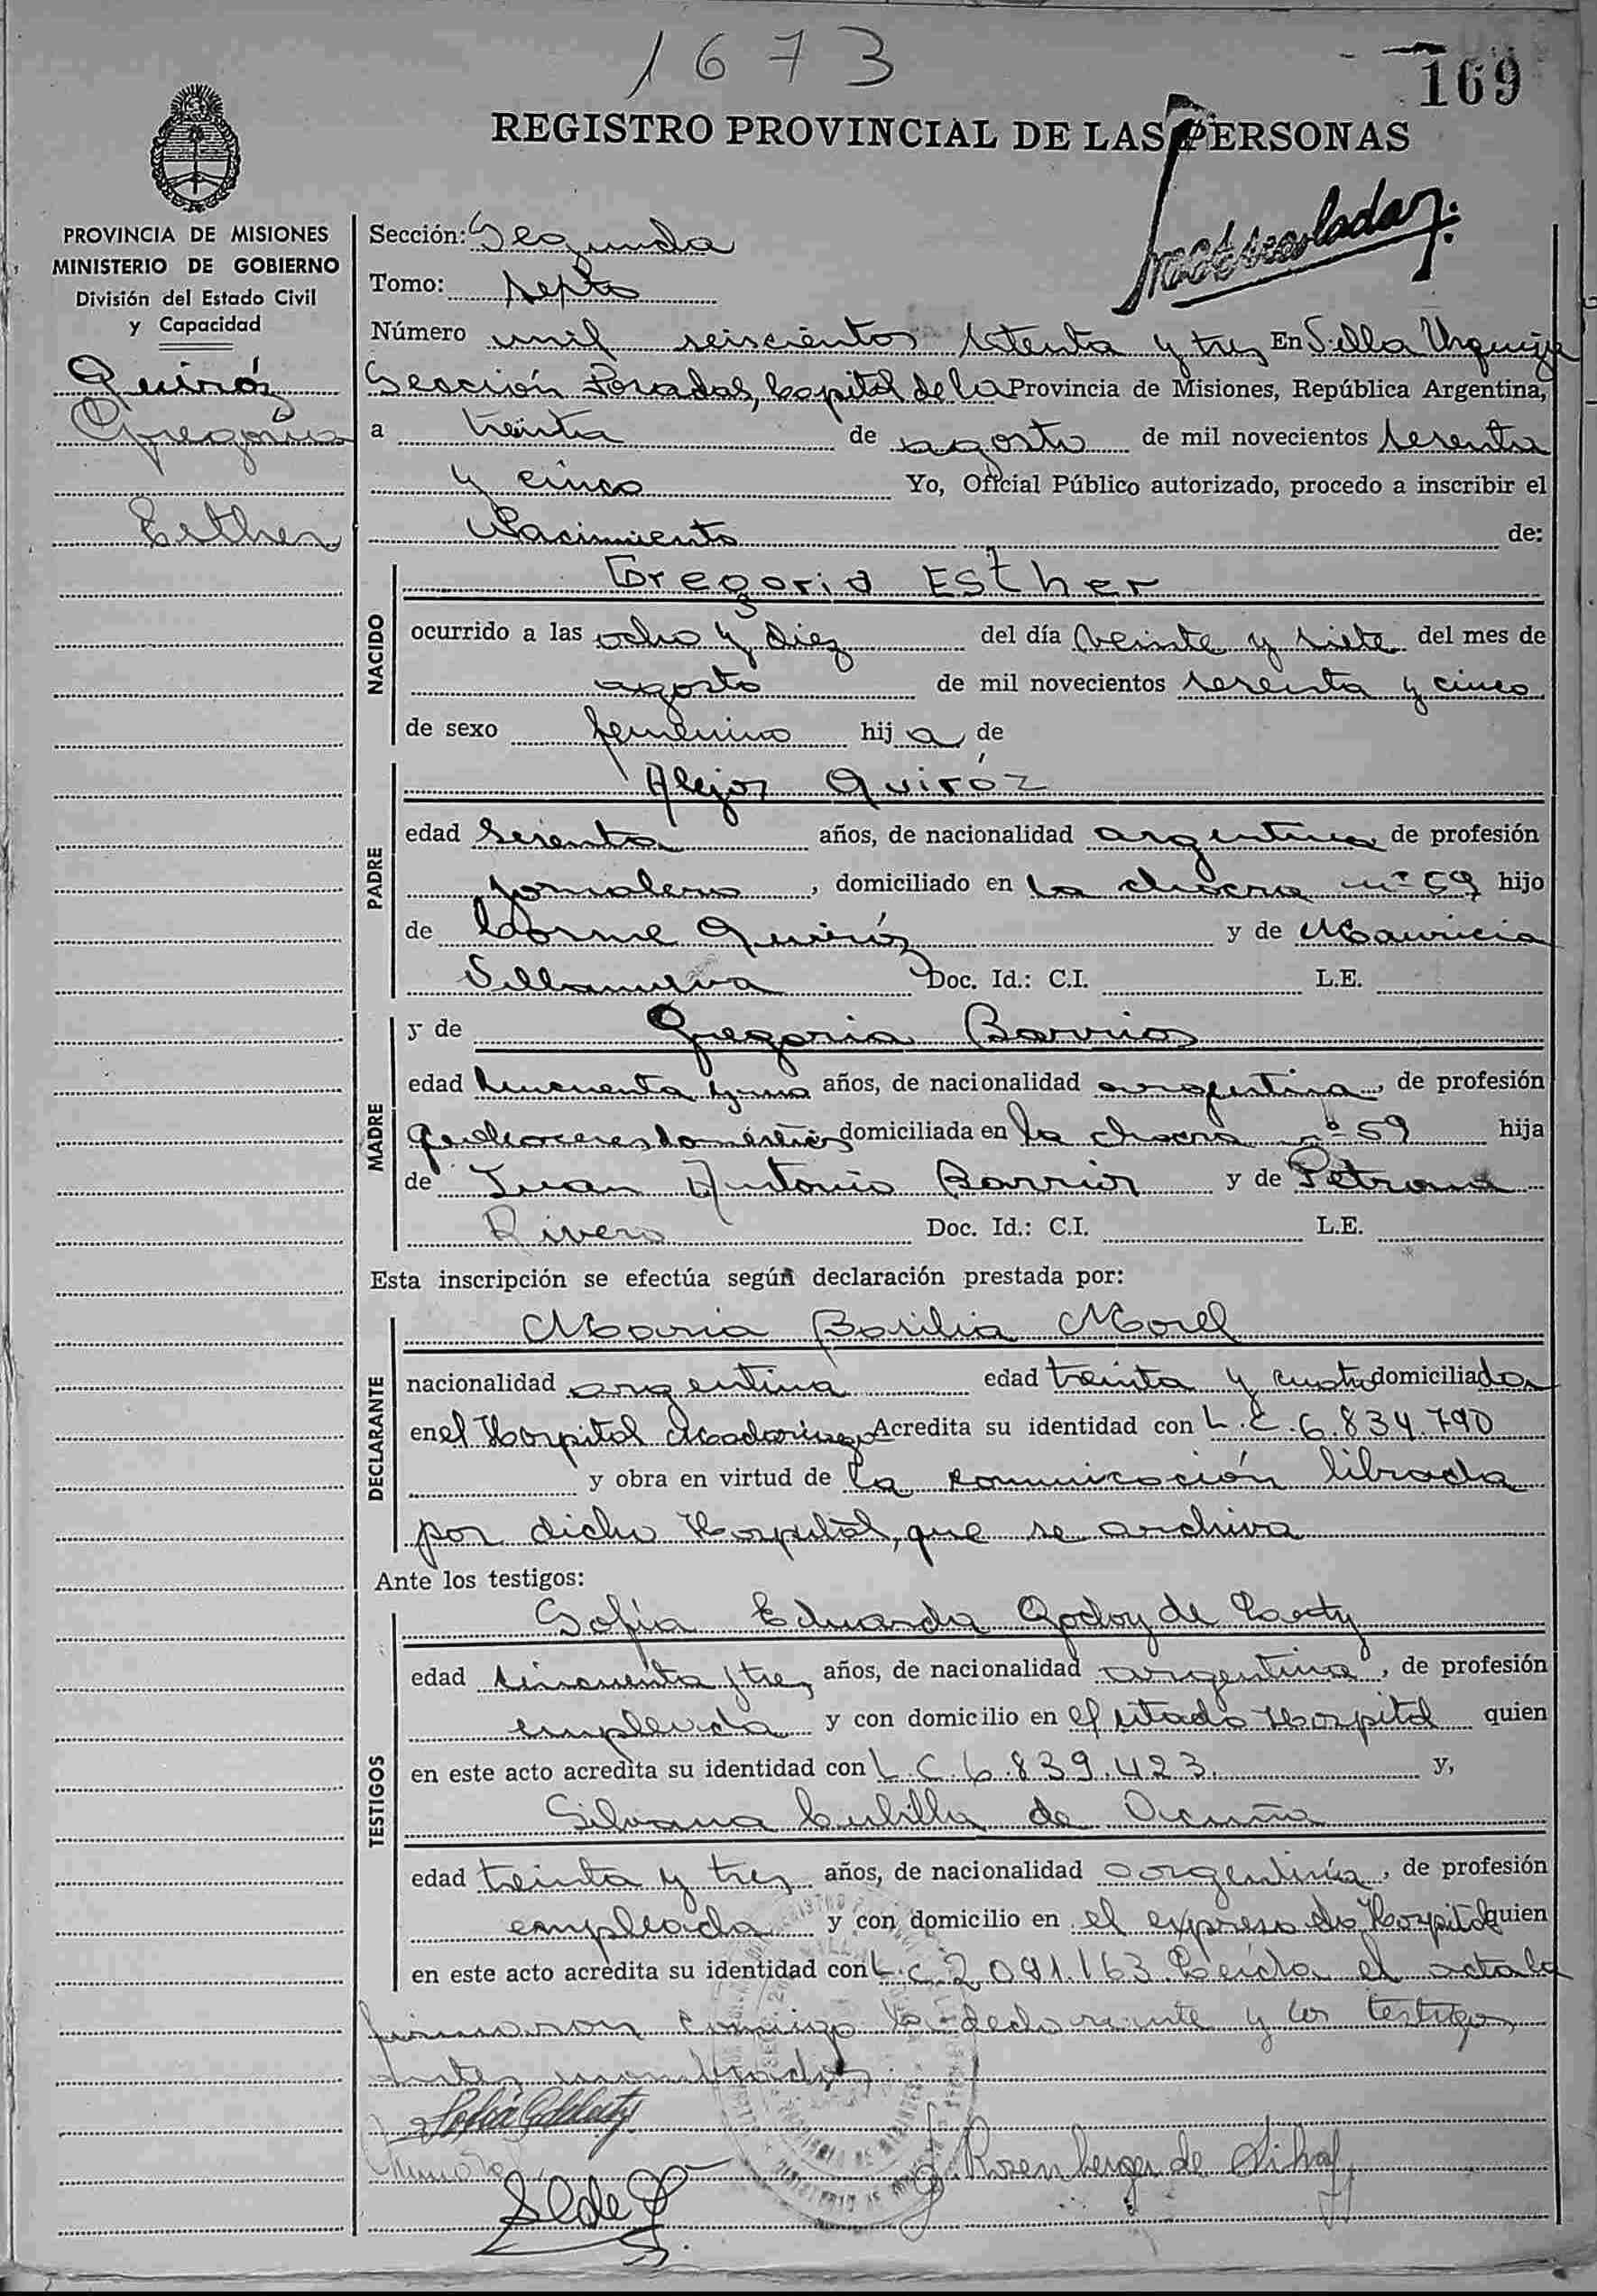 1673
169
REGISTRO PROVINCIAL DE LAS PERSONAS
PROVINCIA DE MISIONES
MINISTERIO DE GOBIERNO
División del Estado Civil
y Capacidad
Quiróz
Gregoria
Esther
Sección: Segunda
Tomo: septo
Número mil seiscientos setenta y tres En Villa Urquiza
Sección Posadas, Capital de la Provincia de Misiones, República Argentina,
a treinta de agosto de mil novecientos sesenta
y cinco Yo, Oficial Público autorizado, procedo a inscribir el
Nacimiento de:
NACIDO
Gregoria Esther
ocurrido a las ocho y diez del día veinte y siete del mes de
agosto de mil novecientos sesenta y cinco
de sexo femenino hija de
PADRE
Alejos Quiróz
edad sesenta años, de nacionalidad argentina de profesión
jornalero, domiciliado en la chacra nº 59 hijo
de Cosme Quiróz y de Mauricia
Villanueva Doc. Id.: C.I. L.E.
MADRE
y de Gregoria Barrios
edad cincuenta y uno años, de nacionalidad argentina, de profesión
domiciliada en la chacra nº 59 hija
de Juan Antonio Barrios y de Petrona
Rivero Doc. Id.: C.I. L.E.
Esta inscripción se efectúa según declaración prestada por:
DECLARANTE
Maria Basilia Morel
nacionalidad argentina edad treinta y cuatro domiciliada
en el Hospital Madariaga Acredita su identidad con L.C. 6.834.790
y obra en virtud de la comunicación librada
por dicho Hospital, que se archiva
Ante los testigos:
TESTIGOS
Sofia Eduarda Godoy de
edad cincuenta y tres años, de nacionalidad argentina, de profesión
empleada y con domicilio en el citado Hospital quien
en este acto acredita su identidad con L.C. 6.839.423. y,
Silvana Cubilla de Acuña
edad treinta y tres años, de nacionalidad argentina, de profesión
empleada y con domicilio en el expresado Hospital quien
en este acto acredita su identidad con L.C. 2.091.163 Leida el acta la
firmaron conmigo la declarante y los testigos
antes nombrados
Rosenberger de